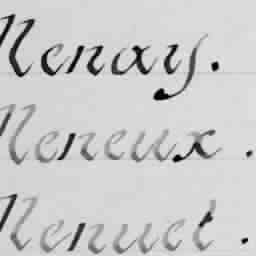 Menay.
Meneux.
Menuet.